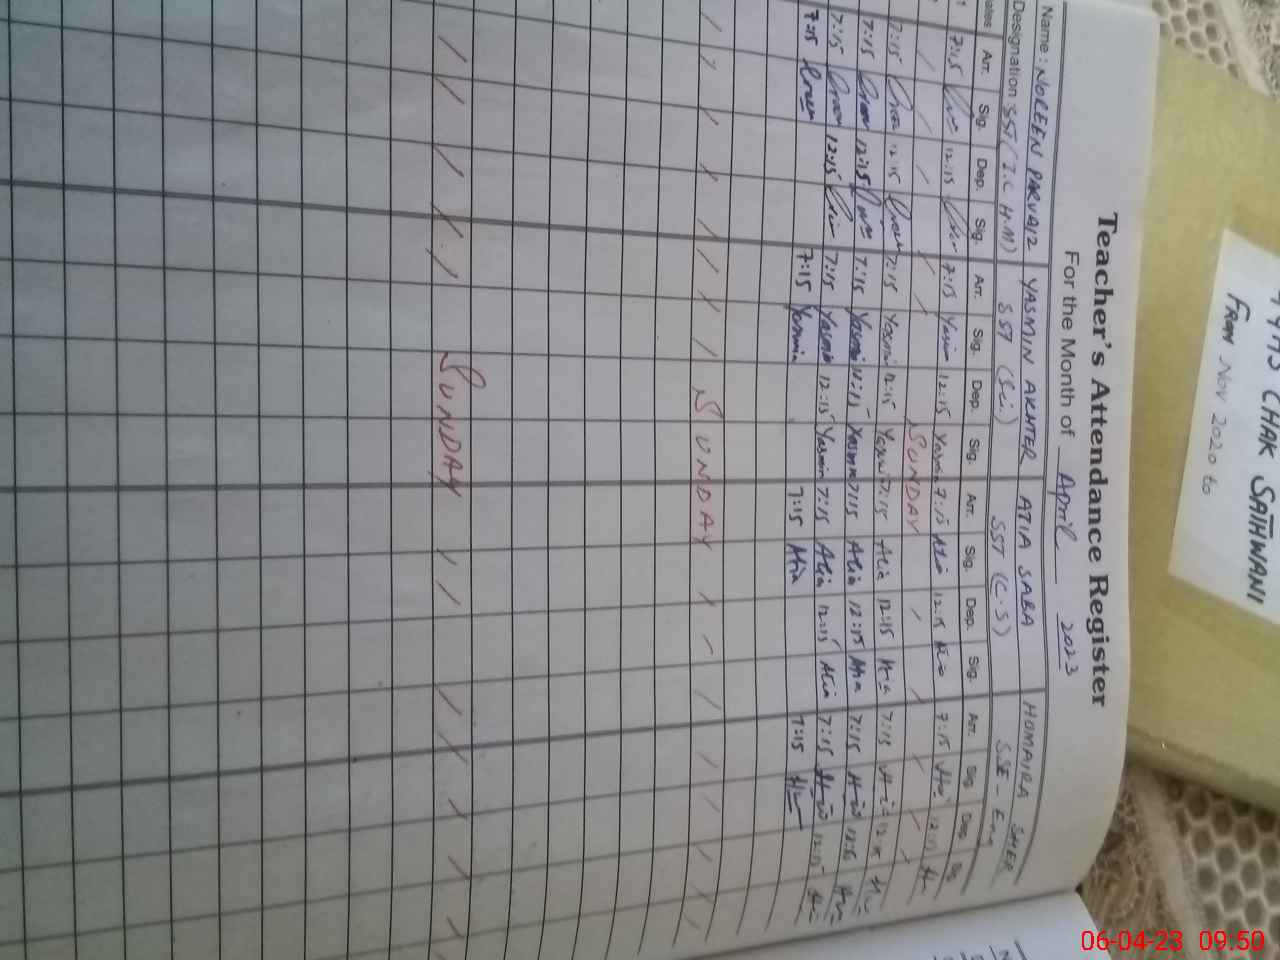 Teacher's Attendance Register
For the Month of April 2023
Name : NOREEN PARVAIZ YASMIN AKHTER ATIA SABA HOMAIRA SHER
Designation SST (I.C H.M) SST (Sci.) SST (C.S) SSE -
Arr. Sig. Dep. Sig. Arr. Sig. Dep. Sig. Arr. Sig. Dep. Sig. Arr. Sig. Dep.
1 7:15 12:15 7:15 Yasmin 12:15 Yasmin 7:15 Atia 12:15 Atia 7:15 12:15
SUNDAY
7:15 12:15 7:15 Yasmin 12:15 Yasmin 7:15 Atia 12:15 Atia 7:15 12:15
7:15 12:15 7:15 Yasmin 12:15 Yasmin 7:15 Atia 12:15 Atia 7:15 12:15
7:15 12:15 7:15 Yasmin 12:15 Yasmin 7:15 Atia 12:15 Atia 7:15 12:15
7:15 7:15 Yasmin 7:15 Atia 7:15
SUNDAY
SUNDAY
CHAK SAIHWANI
FROM NOV 2020 to
06-04-23 09:50